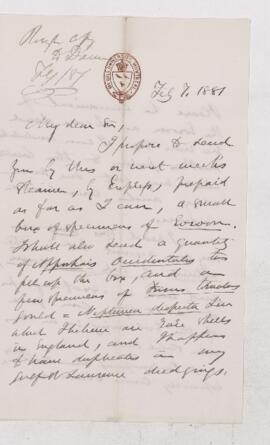 Rough copy
Feb 7. 1881
My dear Sir,
I propose to send
you by this or next weeks
steamer, by Express, prepaid
as far as I can, a small
box of specimens of Eozoon.
I shall also send a quantity
of Aporrhais Occidentalis to
fill up the box, and a
few specimens of Fusus
Gould = Neptunea despecta Lin
which I believe are rare shells
in England, and I happen
to have duplicates in my
Gulf St Lawrence dredgings.